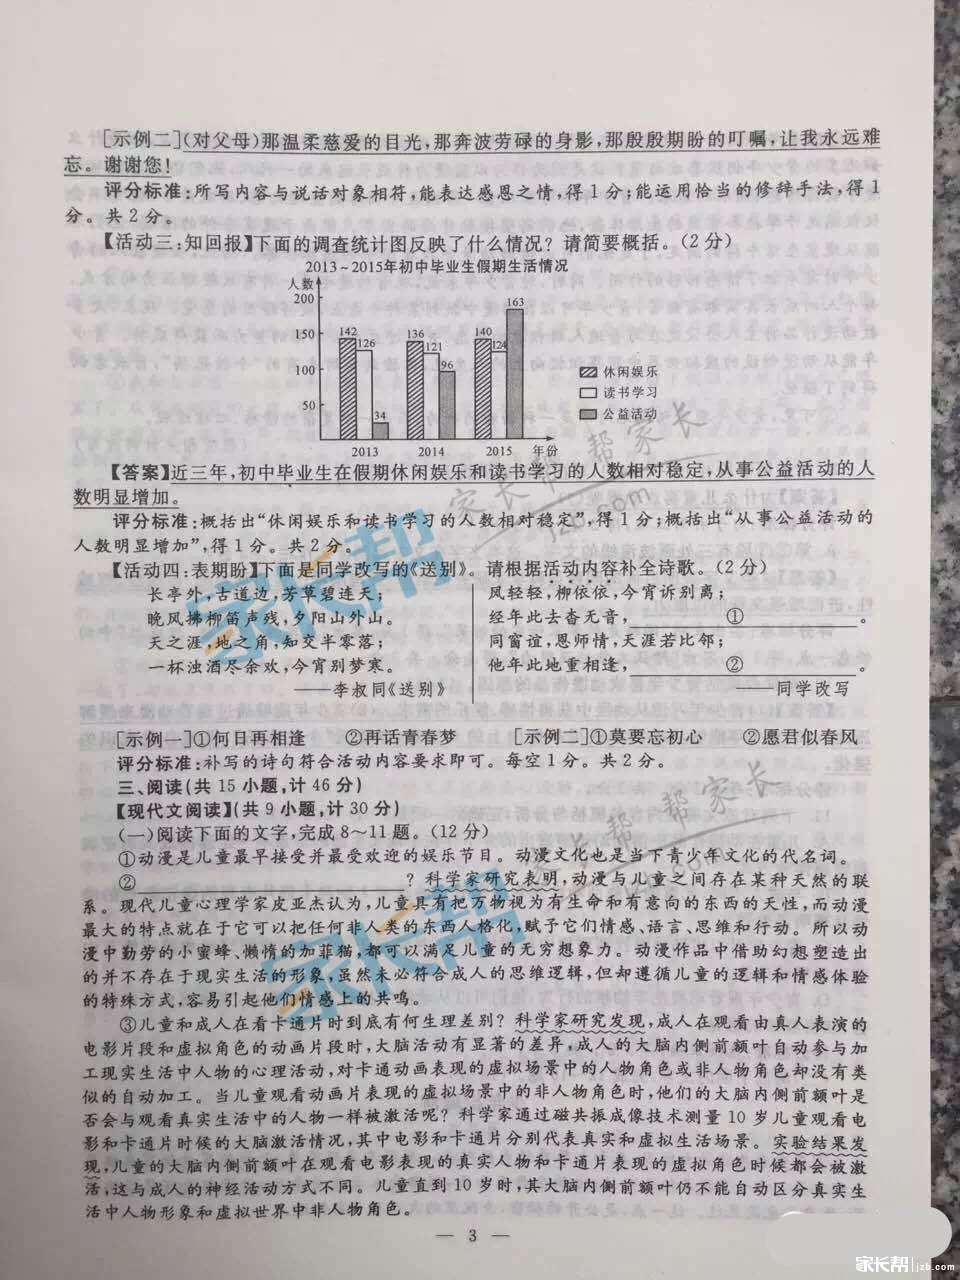 [示例二](对父母)那温柔慈爱的目光,那奔波劳碌的身影,那殷殷期盼的叮嘱,让我永远难
忘。谢谢您!
评分标准:所写内容与说话对象相符,能表达感恩之情,得1分;能运用恰当的修辞手法,得1
分。共2分。
【活动三:知回报】下面的调查统计图反映了什么情况?请简要概括。(2分)
2013~2015年初中毕业生假期生活情况
人数
200
150
100
50
142
126
34
136
121
96
140
124
163
休闲娱乐
读书学习
公益活动
2013 2014 2015 年份
【答案】近三年,初中毕业生在假期休闲娱乐和读书学习的人数相对稳定,从事公益活动的人
数明显增加。
评分标准:概括出“休闲娱乐和读书学习的人数相对稳定”,得1分;概括出“从事公益活动的
人数明显增加”,得1分。共2分。
【活动四:表期盼】下面是同学改写的《送别》。请根据活动内容补全诗歌。(2分)
长亭外,古道边,芳草碧连天;
晚风拂柳笛声残,夕阳山外山。
天之涯,地之角,知交半零落;
一杯浊酒尽余欢,今宵别梦寒。
——李叔同《送别》
风轻轻,柳依依,今宵诉别离;
经年此去杳无音,①。
同窗谊,恩师情,天涯若比邻;
他年此地重相逢,②。
——同学改写
[示例一]①何日再相逢 ②再话青春梦 [示例二]①莫要忘初心 ②愿君似春风
评分标准:补写的诗句符合活动内容要求即可。每空1分。共2分。
三、阅读(共15小题,计46分)
【现代文阅读】(共9小题,计30分)
(一)阅读下面的文字,完成8~11题。(12分)
①动漫是儿童最早接受并最受欢迎的娱乐节目。动漫文化也是当下青少年文化的代名词。
②?科学家研究表明,动漫与儿童之间存在某种天然的联
系。现代儿童心理学家皮亚杰认为,儿童具有把万物视为有生命和有意向的东西的天性,而动漫
最大的特点就在于它可以把任何非人类的东西人格化,赋予它们情感、语言、思维和行动。所以动
漫中勤劳的小蜜蜂、懒惰的加菲猫,都可以满足儿童的无穷想象力。动漫作品中借助幻想塑造出
的并不存在于现实生活的形象,虽然未必符合成人的思维逻辑,但却遵循儿童的逻辑和情感体验
的特殊方式,容易引起他们情感上的共鸣。
③儿童和成人在看卡通片时到底有何生理差别?科学家研究发现,成人在观看由真人表演的
电影片段和虚拟角色的动画片段时,大脑活动有显著的差异,成人的大脑内侧前额叶自动参与加
工现实生活中人物的心理活动,对卡通动画表现的虚拟场景中的人物角色或非人物角色却没有类
似的自动加工。当儿童观看动画片表现的虚拟场景中的非人物角色时,他们的大脑内侧前额叶是
否会与观看真实生活中的人物一样被激活呢?科学家通过磁共振成像技术测量10岁儿童观看电
影和卡通片时候的大脑激活情况,其中电影和卡通片分别代表真实和虚拟生活场景。实验结果发
现,儿童的大脑内侧前额叶在观看电影表现的真实人物和卡通片表现的虚拟角色时候都会被激
活,这与成人的神经活动方式不同。儿童直到10岁时,其大脑内侧前额叶仍不能自动区分真实生
活中人物形象和虚拟世界中非人物角色。
— 3 —
家长帮
家长帮
家长帮 帮家长
jzb.com
家长帮 帮家长
家长帮 jzb.com